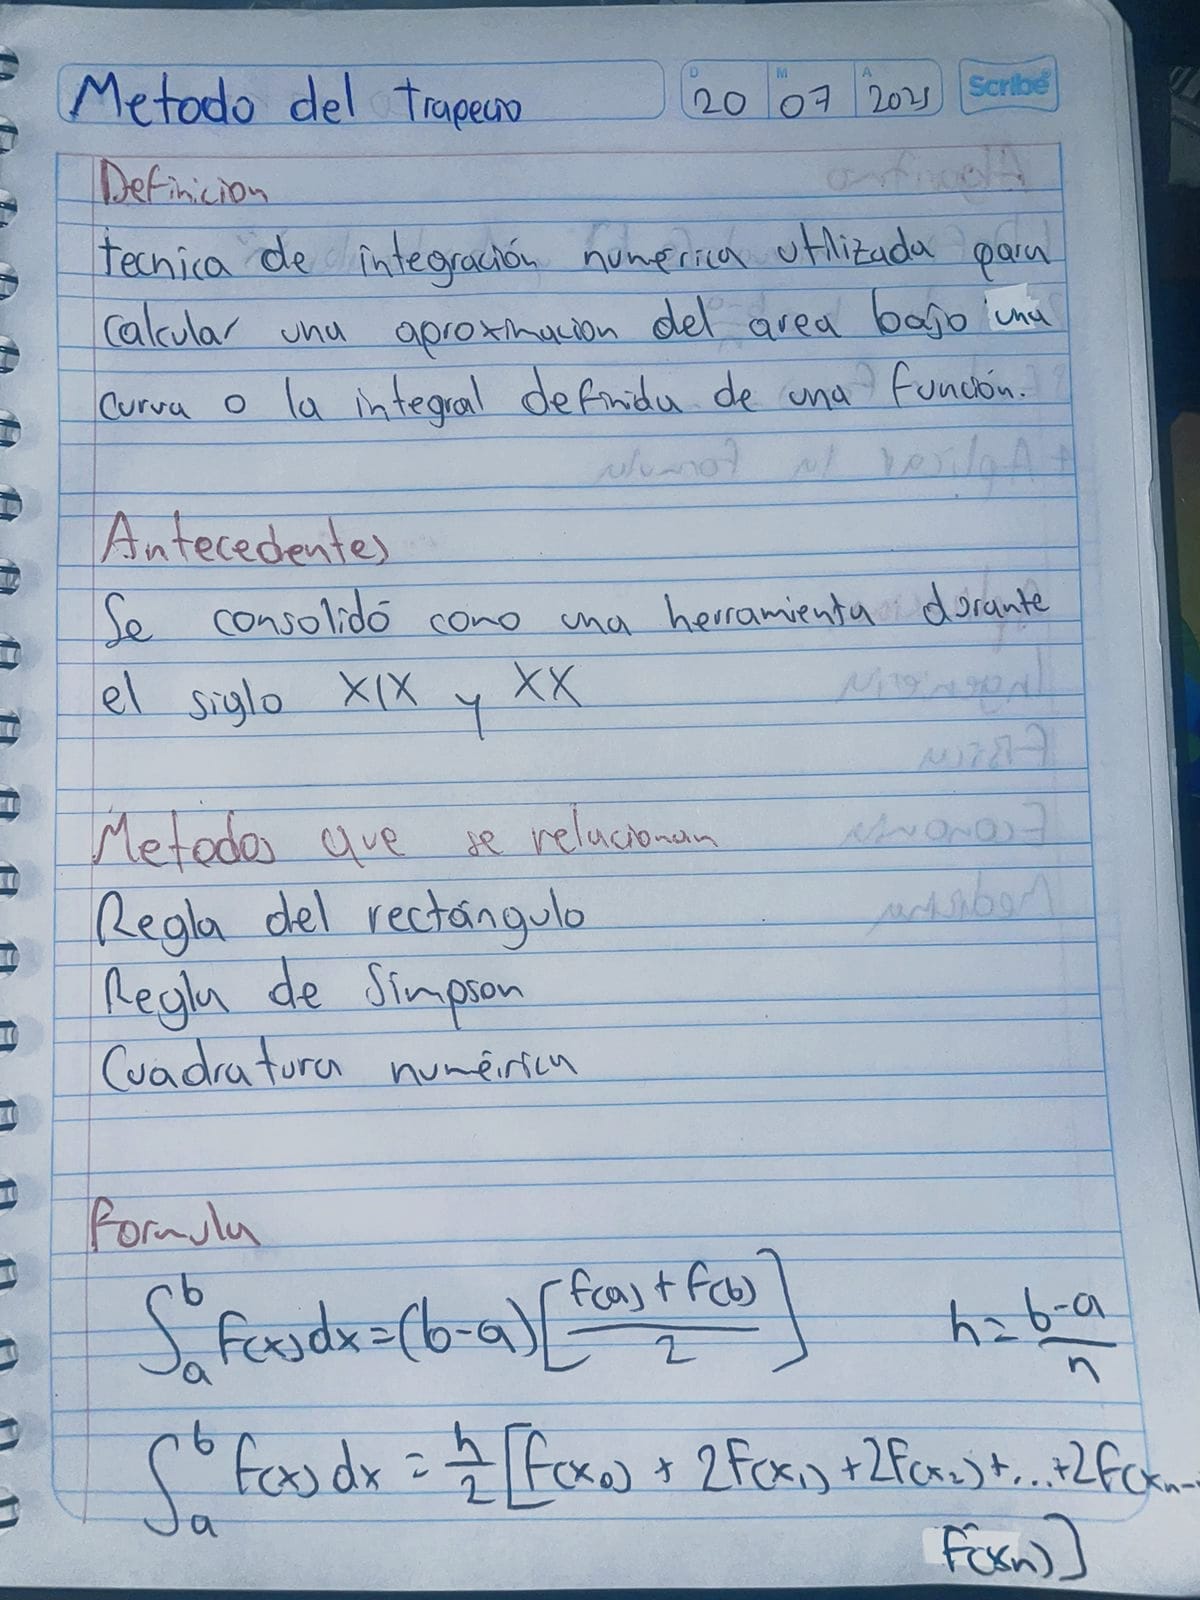 Metodo del trapecio
D 20 M 07 A 2025 Scribe
Definicion
tecnica de integración numerica utilizada para
calcular una aproximacion del area bajo una
curva o la integral definida de una función.
Antecedentes
Se consolidó como una herramienta durante
el siglo XIX y XX
Metodos que se relacionan
Regla del rectángulo
Regla de Simpson
Cuadratura numérica
Formula
∫ₐᵇ f(x)dx=(b-a)[(f(a)+f(b))/2] h=(b-a)/n
∫ₐᵇ f(x)dx = h/2 [f(x₀) + 2f(x₁)+2f(x₂)+...+2f(xₙ₋
f(xn)]